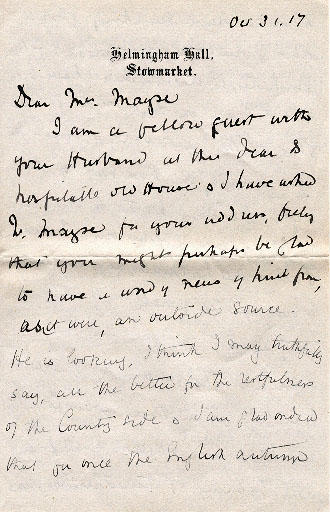 Oct 31. 17
Helmingham Hall,
Stowmarket.
Dear Mrs. Mayse
I am a fellow guest with
your Husband at this dear &
hospitable old House & I have asked
Mayse for your address, feeling
that you might perhaps be glad
to have a word of news of him from,
as it were, an outside source.
He is looking, I think I may truthfully
say, all the better for the restfulness
of the Country side & I am glad indeed
that for once the English autumn